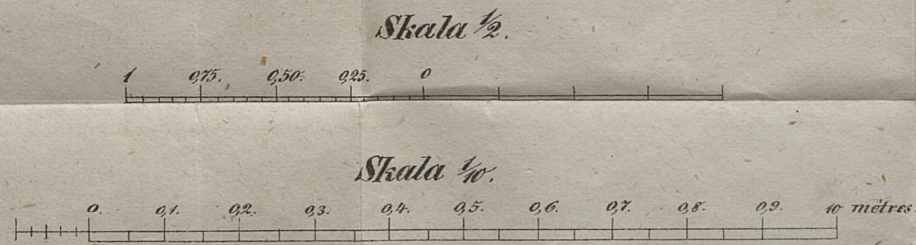 Skala 1/2.
1 0,75. 0,50. 0,25. 0
Skala 1/10.
0. 0,1. 0,2. 0,3. 0,4. 0,5. 0,6. 0,7. 0,8. 0,9. 10 métres.